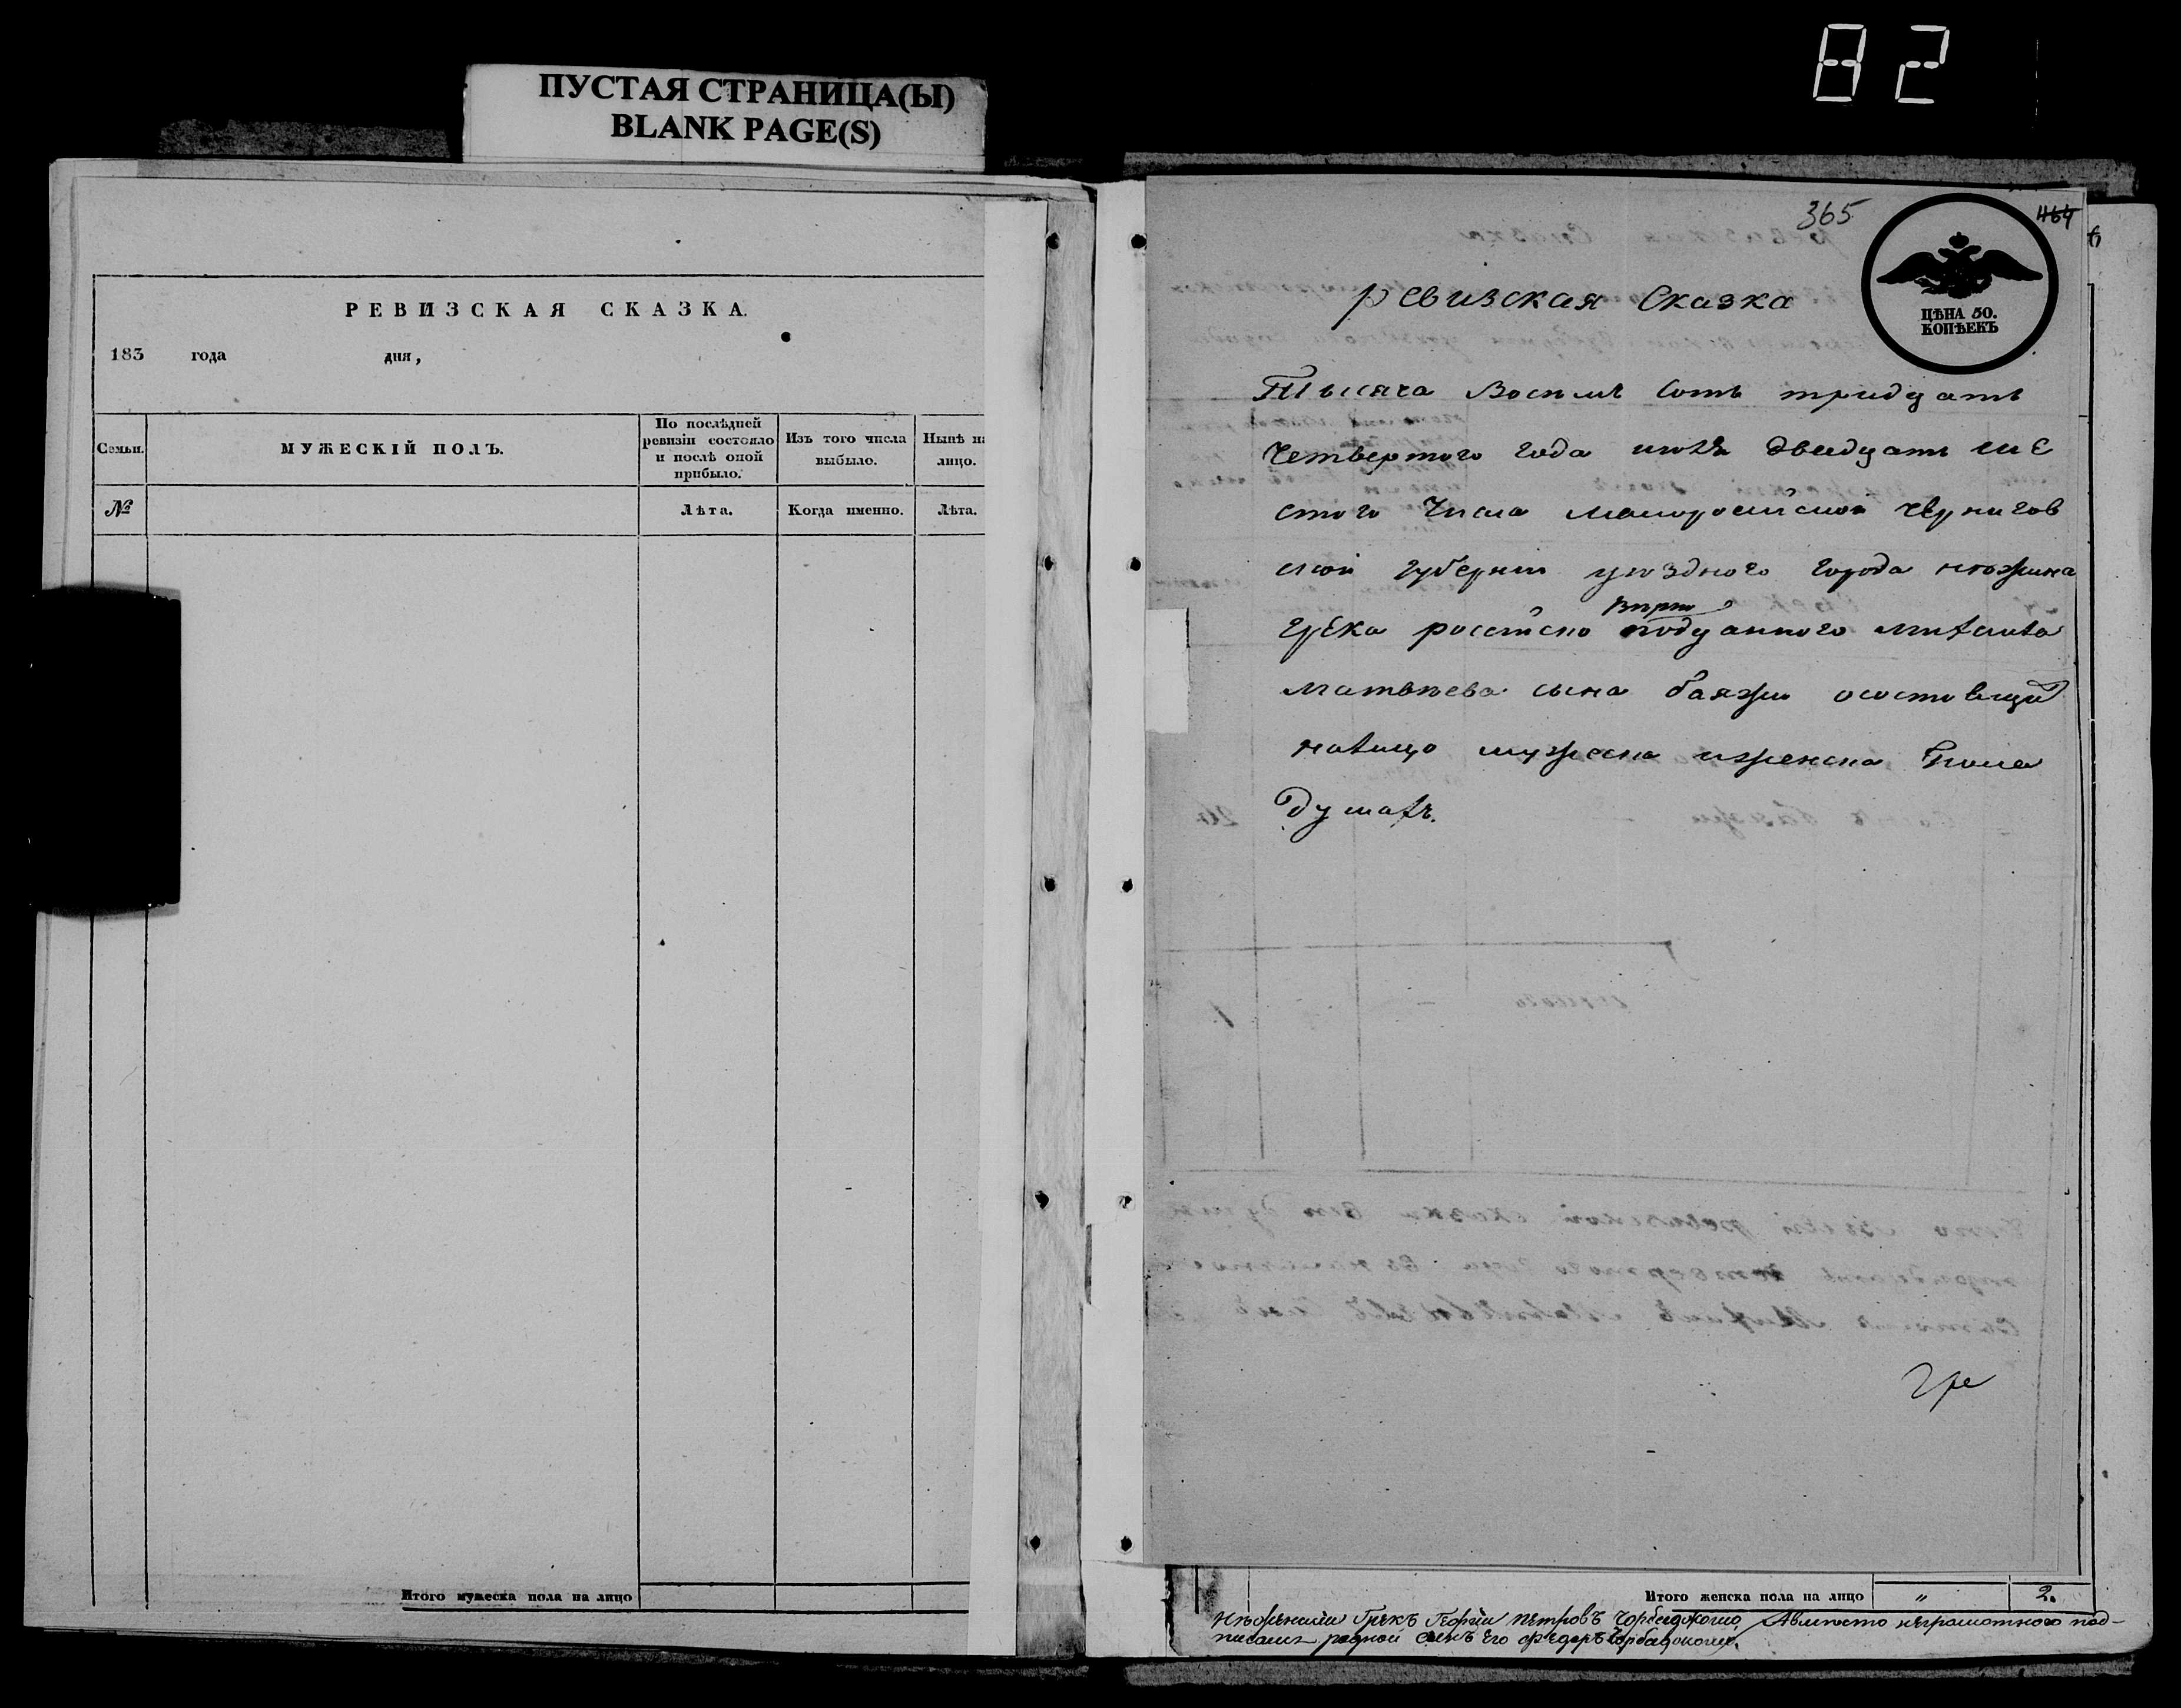 82
ПУСТАЯ СТРАНИЦА(Ы)
BLANK PAGE(S)
РЕВИЗСКАЯ СКАЗКА.
183 года дня,
Семьи.
МУЖЕСКІЙ ПОЛЪ.
По послѣдней ревизіи состояло и послѣ оной прибыло.
Изъ того числа выбыло.
Нынѣ на лицо.
№
Лѣта.
Когда именно.
Лѣта.
Итого мужеска пола на лицо
365
464
ЦѢНА 50.
КОПѢЕКЪ
ревизская Сказка
Тысяча Восемь Сотъ тридцать
Четвертого года июля двадцать ше
стого Числа малоросийской чернигов
ской губернии уѣздного города нѣжина
грека росейско подданного михаила
матвѣева сына баяжи осостоящи
налицо мужеска иженска пола
душахъ.
Гре
Итого женска пола на лицо " 2.
Нѣженский Грекъ Георгий Петровъ Авместо неграмотного под-
писалъ родной сынъ его федоръ